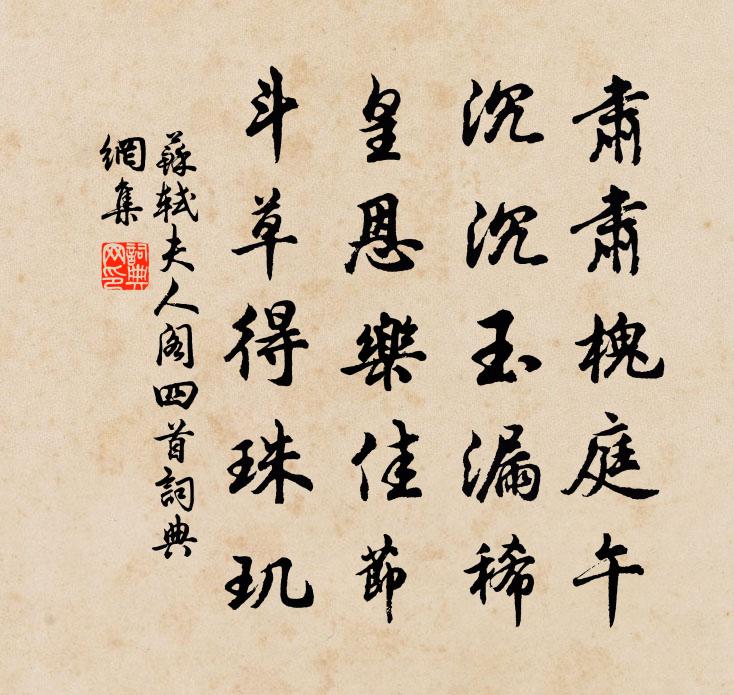 肅肅槐庭午
沉沉玉漏稀
皇恩樂佳節
斗草得珠玑
蘇軾夫人阁四首詞典
網集
詞典
网印